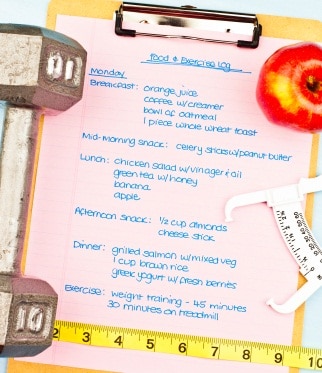 Food & Exercise Log
Monday
Breakfast: orange juice
coffee w/creamer
bowl of oatmeal
1 piece whole wheat toast
Mid-morning snack: celery sticks w/peanut butter
Lunch: chicken salad w/vinager & oil
green tea w/honey
banana
apple
Afternoon snack: 1/2 cup almonds
cheese stick
Dinner: grilled salmon w/mixed veg
1 cup brown rice
greek yogurt w/fresh berries
Exercise: weight training - 45 minutes
30 minutes on treadmill
10
10
2 3 4 5 6 7 8 9 10